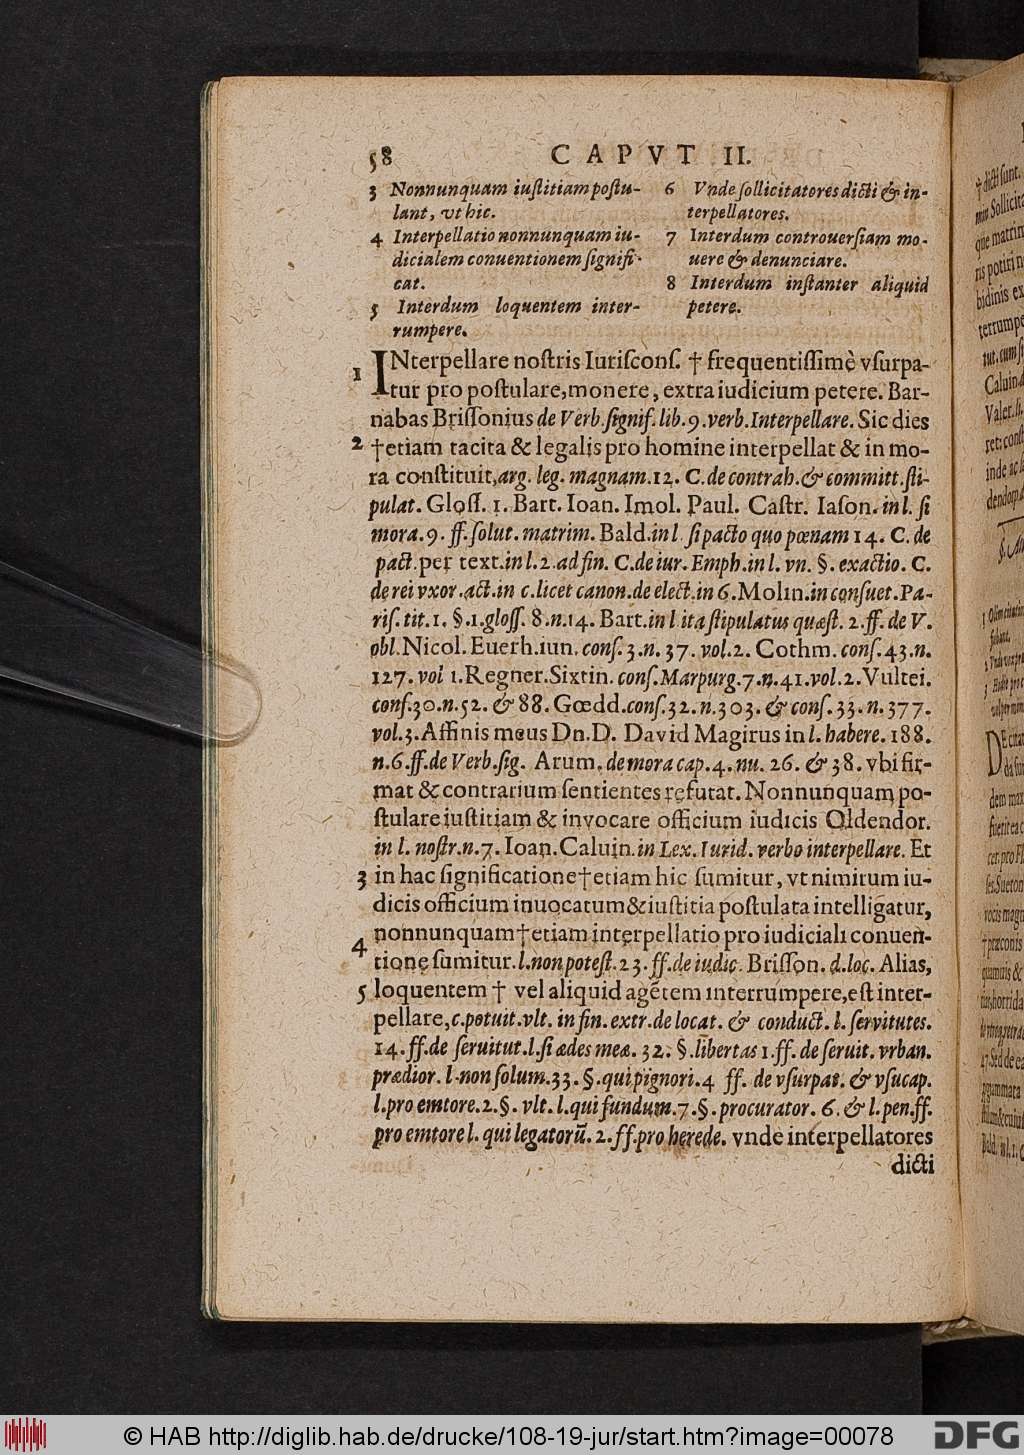 58 CAPVT II.
3 Nonnunquam iuſtitiam poſtu-
lant, vt hic.
4 Interpellatio nonnunquam iu-
dicialem conuentionem ſignifi-
cat.
5 Interdum loquentem inter-
rumpere.
6 Vnde ſollicitatores dicti & in-
terpellatores.
7 Interdum controuerſiam mo-
uere & denunciare.
8 Interdum inſtanter aliquid
petere.
1 INterpellare noſtris Iuriſconſ. † frequentiſſimè vſurpa-
tur pro poſtulare, monere, extra iudicium petere. Bar-
nabas Briſſonius de Verb. ſignif. lib. 9. verb. Interpellare. Sic dies
2 †etiam tacita & legalis pro homine interpellat & in mo-
ra conſtituit, arg. leg. magnam. 12. C. de contrah. & committ. ſti-
pulat. Gloſſ. 1. Bart. Ioan. Imol. Paul. Caſtr. Iaſon. in l. ſi
mora. 9. ff. ſolut. matrim. Bald. in l ſi pacto quo pœnam 14. C. de
pact. per text. in l. 2. ad fin. C. de iur. Emph. in l. vn. §. exactio. C.
de rei vxor. act. in c. licet canon. de elect. in 6. Molin. in conſuet. Pa-
riſ. tit. 1. §. 1. gloſſ. 8. n. 14. Bart. in l ita ſtipulatus quæſt. 2. ff. de V.
obl. Nicol. Euerh. iun. conſ. 3. n. 37. vol. 2. Cothm. conſ. 43. n.
127. vol 1. Regner. Sixtin. conſ. Marpurg. 7. n. 41. vol. 2. Vultei.
conſ. 30. n. 52. & 88. Gœdd. conſ. 32. n. 303. & conſ. 33. n. 377.
vol. 3. Affinis meus Dn. D. David Magirus in l. habere. 188.
n. 6. ff. de Verb. ſig. Arum. de mora cap. 4. nu. 26. & 38. vbi fir-
mat & contrarium ſentientes refutat. Nonnunquam po-
ſtulare iuſtitiam & invocare officium iudicis Oldendor.
in l. noſtr. n. 7. Ioan. Caluin. in Lex. Iurid. verbo interpellare. Et
3 in hac ſignificatione † etiam hic ſumitur, vt nimirum iu-
dicis officium inuocatum & iuſtitia poſtulata intelligatur,
4 nonnunquam † etiam interpellatio pro iudiciali conuen-
tione ſumitur. l. non poteſt. 23. ff. de iudic. Briſſon. d. loc. Alias,
5 loquentem † vel aliquid agētem interrumpere, eſt inter-
pellare, c. potuit. vlt. in fin. extr. de locat. & conduct. l. ſervitutes.
14. ff. de ſeruitut. l. ſi ædes meæ. 32. §. libertas 1. ff. de ſeruit. vrban.
prædior. l. non ſolum. 33. §. qui pignori. 4 ff. de vſurpat. & vſucap.
l. pro emtore. 2. §. vlt. l. qui fundum. 7. §. procurator. 6. & l. pen. ff.
pro emtore l. qui legatorū. 2. ff. pro herede. vnde interpellatores
dicti
© HAB http://diglib.hab.de/drucke/108-19-jur/start.htm?image=00078
DFG